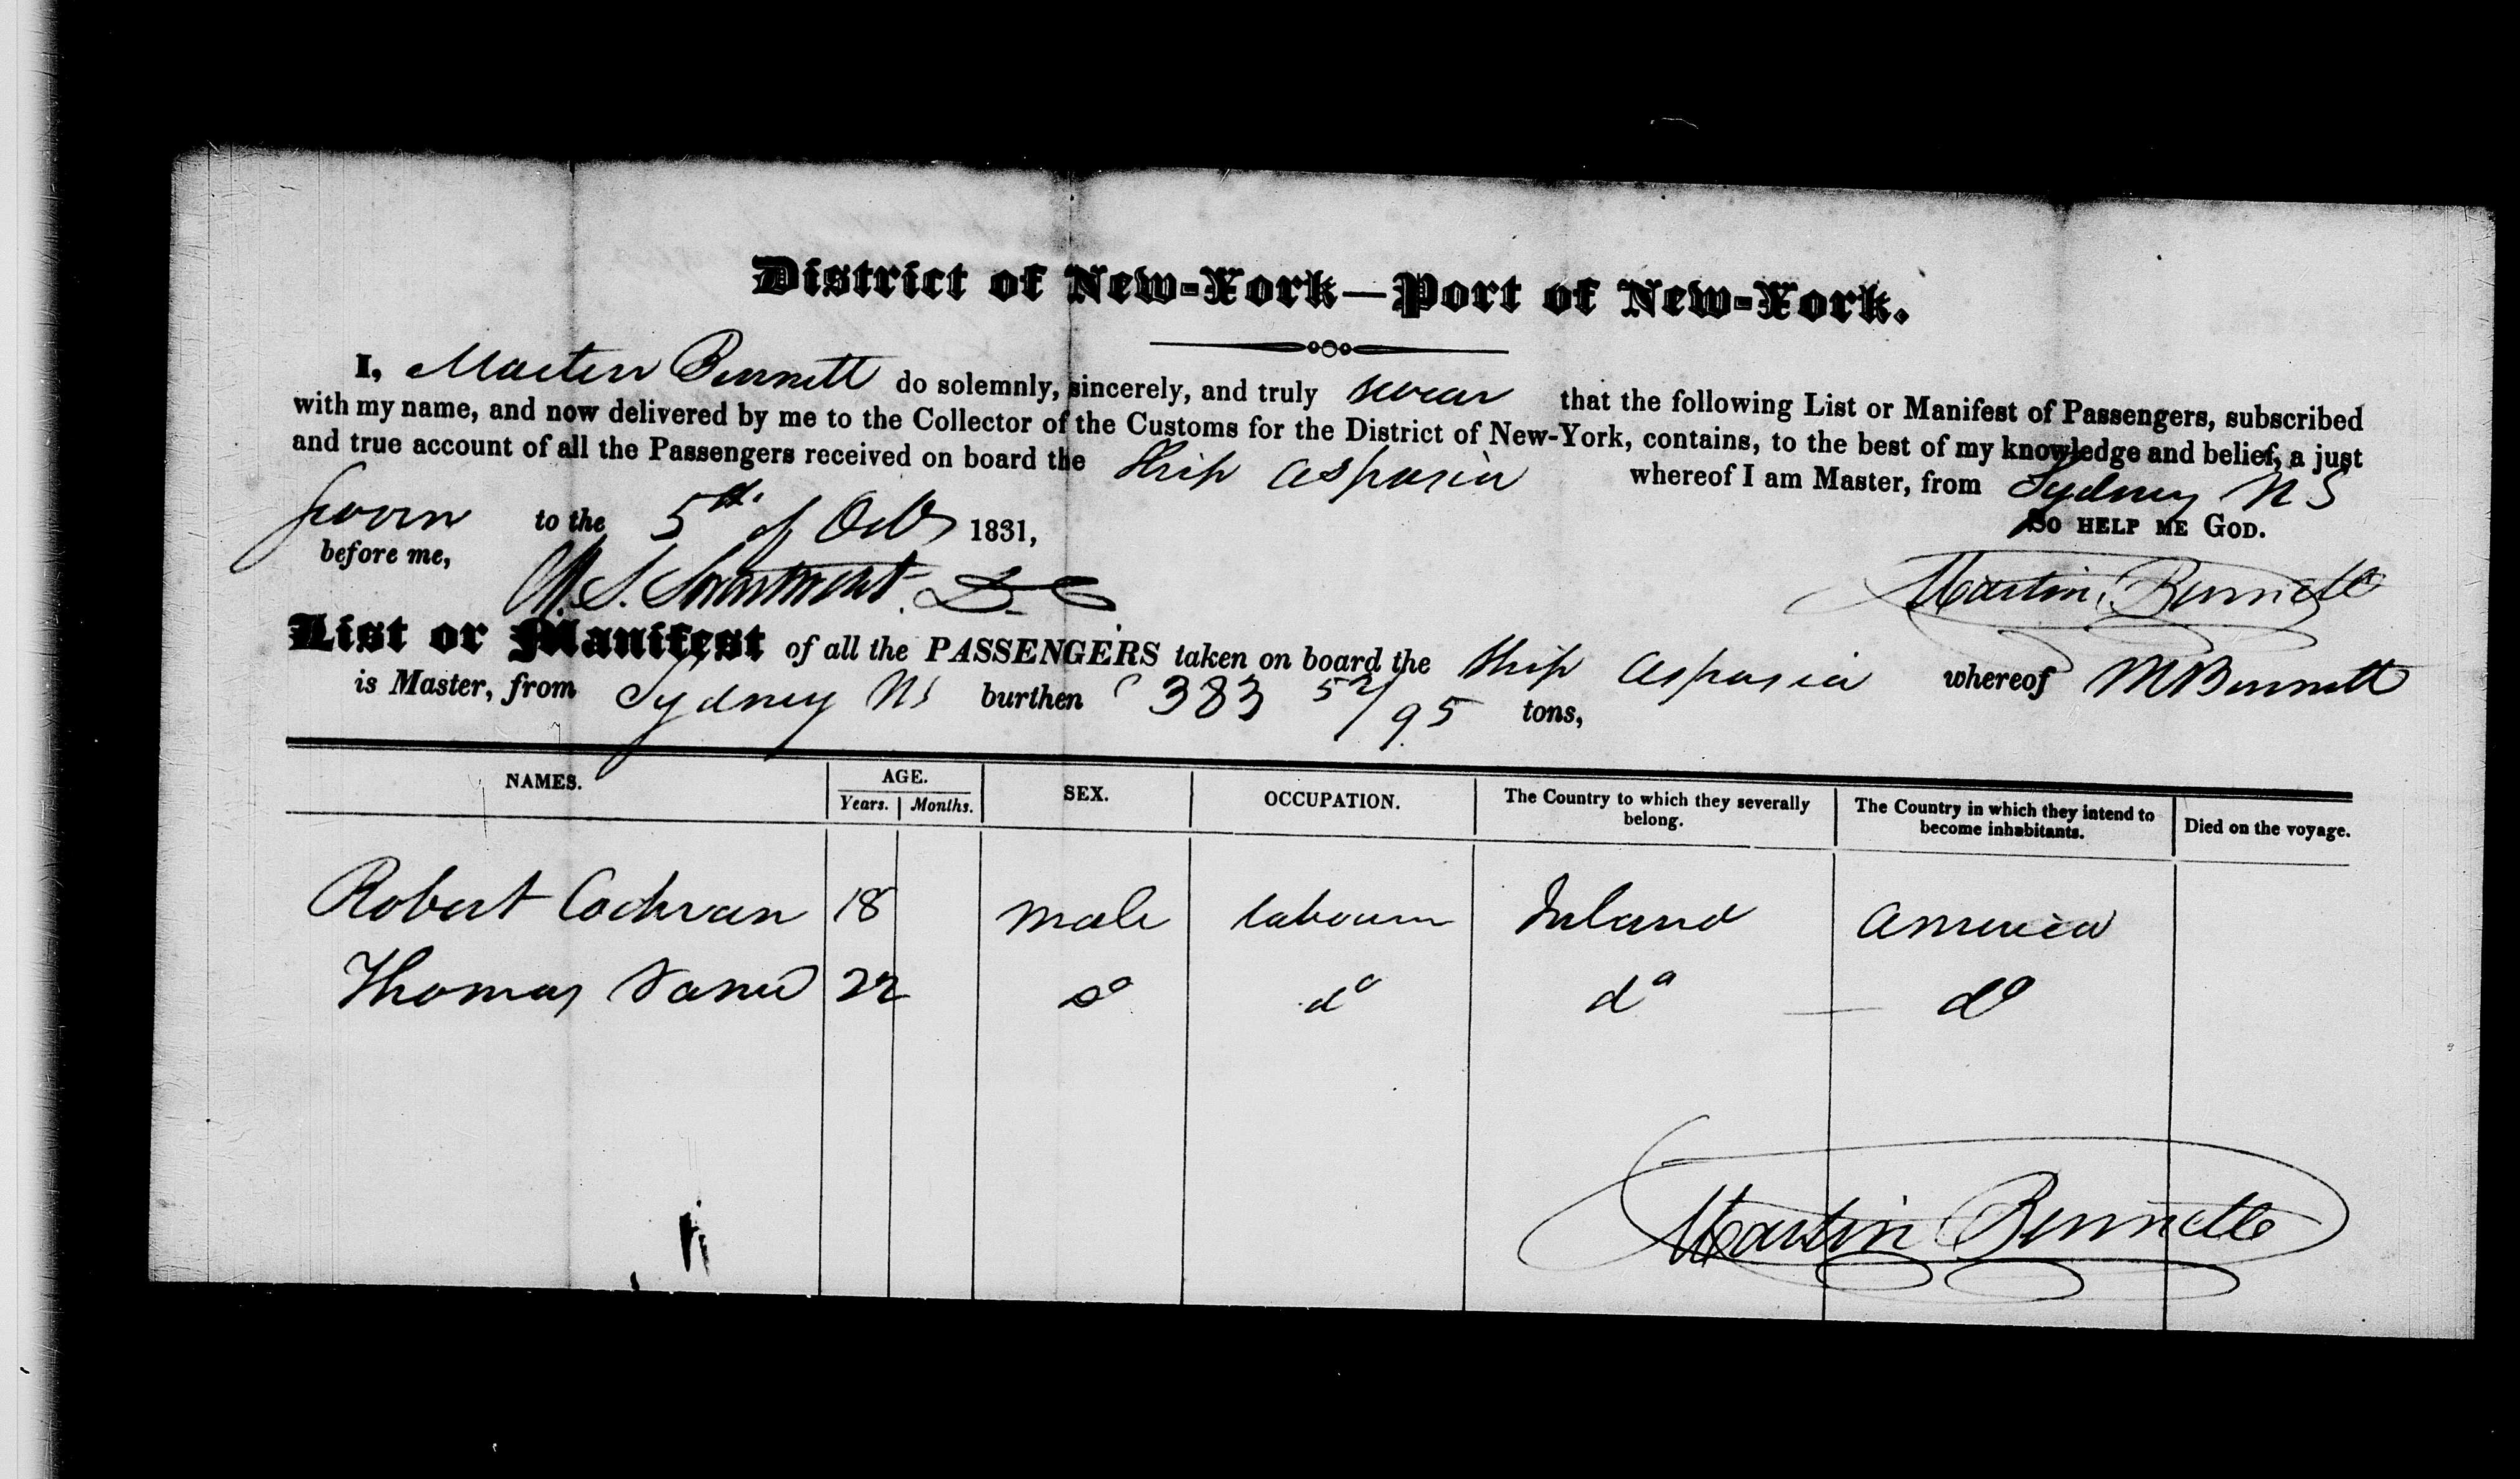 District of New-York—Port of New-York.
I, Martin Bennett do solemnly, sincerely, and truly swear that the following List or Manifest of Passengers, subscribed
with my name, and now delivered by me to the Collector of the Customs for the District of New-York, contains, to the best of my knowledge and belief, a just
and true account of all the Passengers received on board the Ship Aspasia whereof I am Master, from Sydney N S
Sworn to the 5th of Octr 1831, So help me God.
before me, Martin Bennett
List or Manifest of all the PASSENGERS taken on board the Ship Aspasia whereof M Bennett
is Master, from Sydney NS burthen 383 52/95 tons,
NAMES. AGE. SEX. OCCUPATION. The Country to which they severally belong. The Country in which they intend to become inhabitants. Died on the voyage.
Years. Months.
Robert Cochran 18 male labourer Ireland America
Thomas 22 do do do do
Martin Bennett